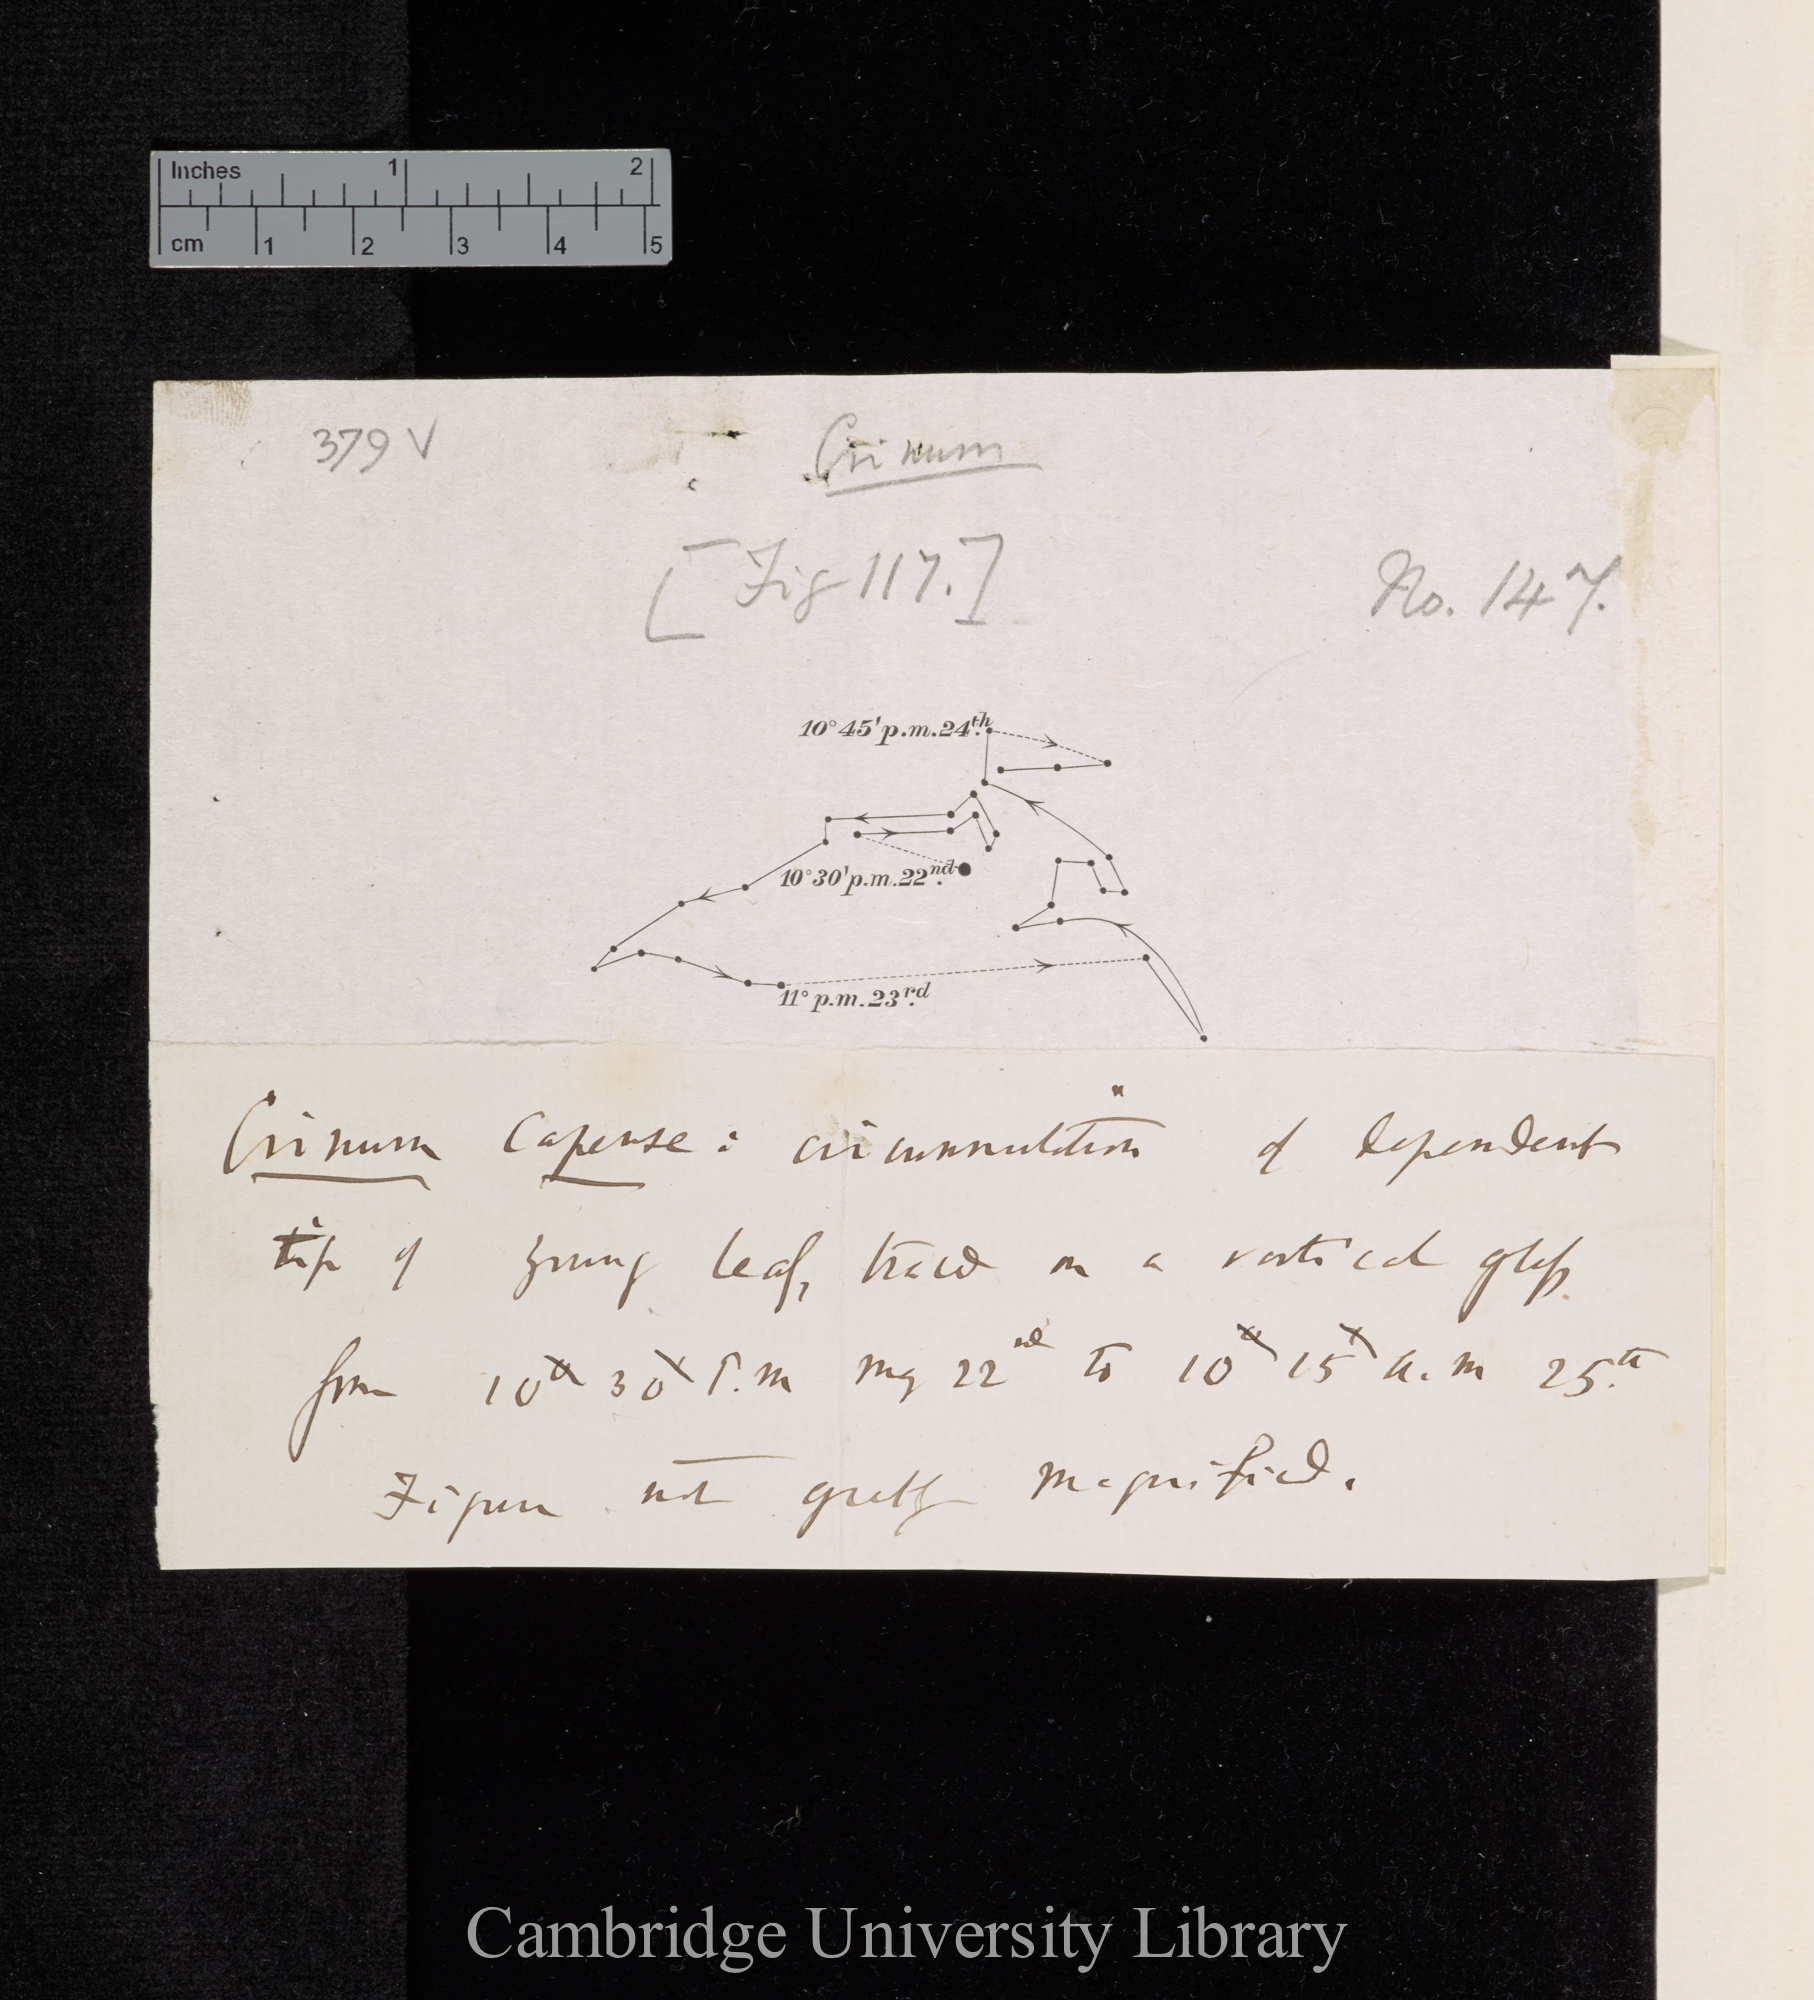 Inches 1 2
cm 1 2 3 4 5
379 V
Crinum
[Fig 117.]
No. 147.
10° 45' p.m. 24th.
10° 30' p.m. 22nd.
11° p.m. 23rd.
Crinum Capense: circumnutation of dependent
tip of young leaf, traced on a vertical glass
from 10 30 P.m May 22nd to 10 15 a.m 25.th
Figure not greatly magnified.
Cambridge University Library